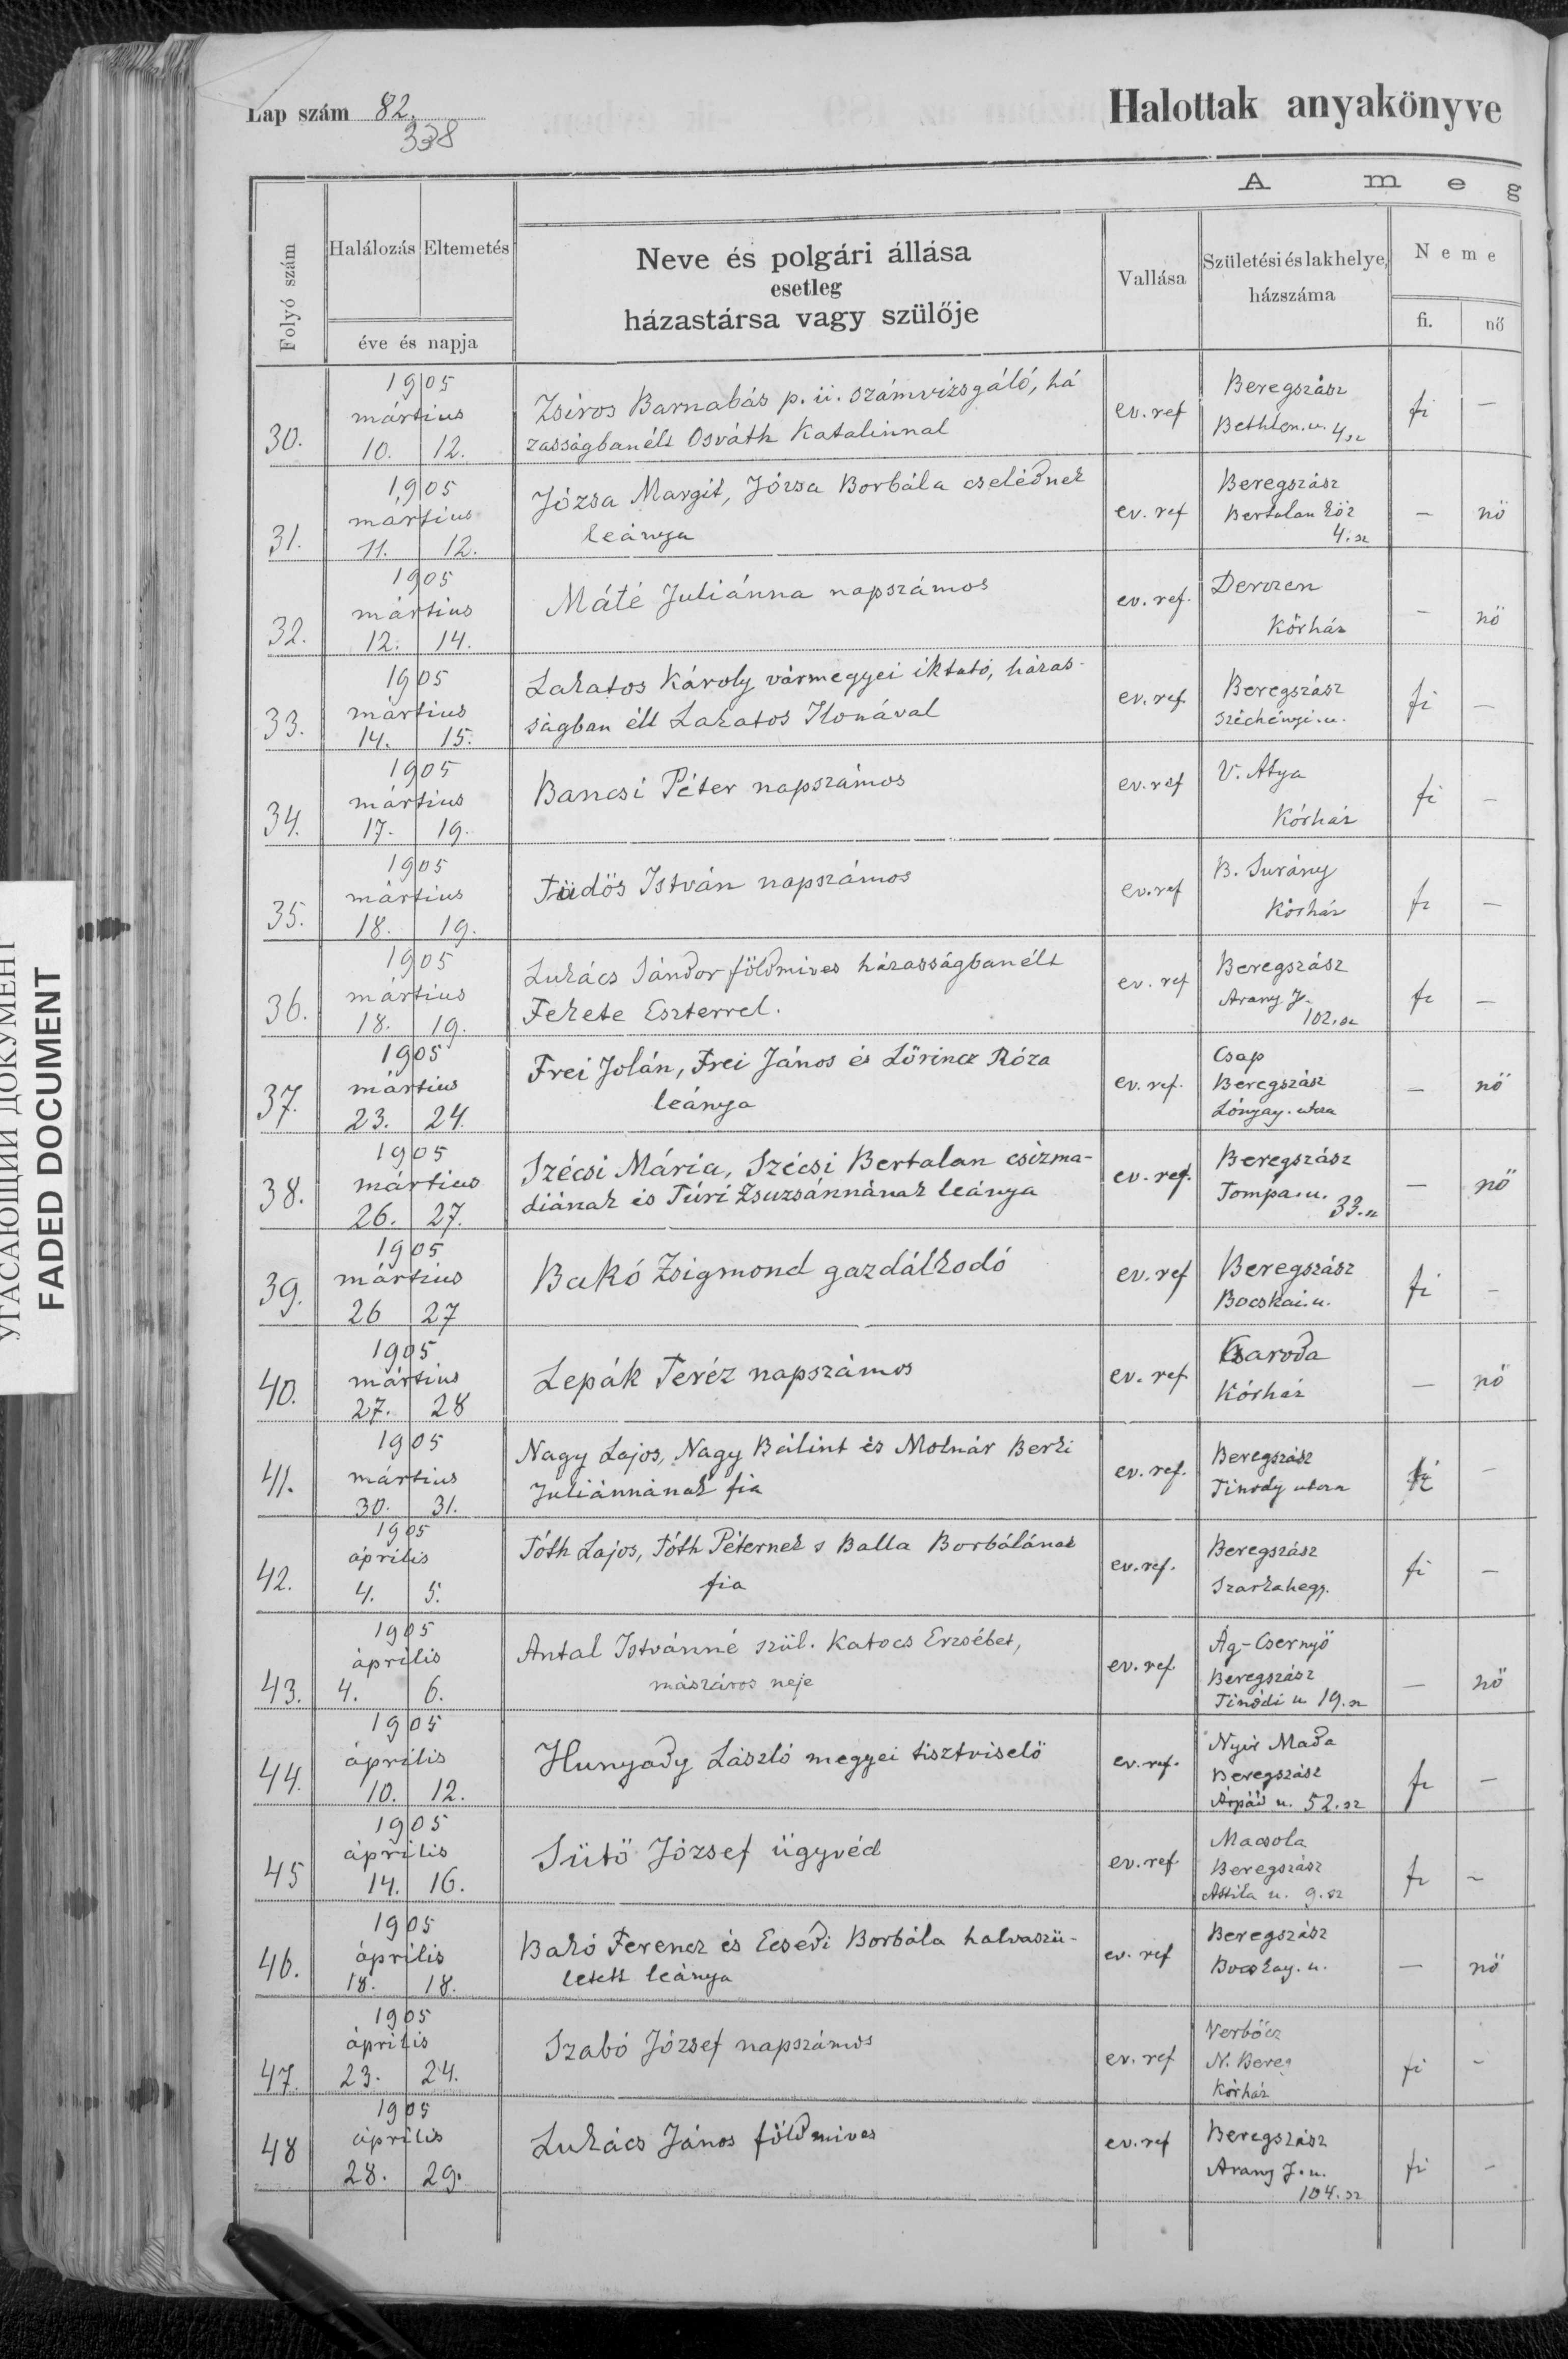 Lap szám 82.
338
Halottak anyakönyve
A m e g
Folyó szám
Halálozás Eltemetés
éve és napja
Neve és polgári állása
esetleg
házastársa vagy szülője
Vallása
Születési és lakhelye,
házszáma
Neme
fi. nő
30.
1905
mártius
10. 12.
Zsíros Barnabás p. ü. számvizsgáló, há
zasságbanélt Osváth Katalinnal
ev. ref
Beregszász
Bethlen. u. 4 sz
fi —
31.
1905
mártius
11. 12.
Józsa Margit, Józsa Borbála cselédnek
leánya
ev. ref
Beregszász
Bertalan köz
4. sz
— nő
32.
1905
mártius
12. 14.
Máté Juliánna napszámos
ev. ref.
Derczen
Kórház
— nő
33.
1905
mártius
14. 15.
Lakatos Károly vármegyei iktató, házas-
ságban élt Lakatos Ilonával
ev. ref
Beregszász
Széchényi. u.
fi —
34.
1905
mártius
17. 19.
Bancsi Péter napszámos
ev. ref
V. Atya
Kórház
fi —
35.
1905
mártius
18. 19.
Tüdös István napszámos
ev. ref
B. Surány
Kórház
fi —
36.
1905
mártius
18. 19.
Lukács Sándor földmives házasságbanélt
Fekete Eszterrel.
ev. ref
Beregszász
Arany J.
102. sz
fi —
37.
1905
mártius
23. 24.
Frei Jolán, Frei János és Lőrincz Róza
leánya
ev. ref.
Csap
Beregszász
Lónyay. utcza
— nő
38.
1905
mártius
26. 27.
Szécsi Mária, Szécsi Bertalan csizma-
diának és Túri Zsuzsánnának leánya
ev. ref.
Beregszász
Tompa. u.
33. sz
— nő
39.
1905
mártius
26 27
Bakó Zsigmond gazdálkodó
ev. ref
Beregszász
Bocskai. u.
fi —
40.
1905
mártius
27. 28
Lepák Teréz napszámos
ev. ref
Csaroda
Kórház
— nő
41.
1905
mártius
30. 31.
Nagy Lajos, Nagy Bálint és Molnár Berki
Juliánnának fia
ev. ref.
Beregszász
Tinody utcza
fi —
42.
1905
április
4. 5.
Tóth Lajos, Tóth Péternek s Balla Borbálának
fia
ev. ref.
Beregszász
Szarkahegy.
fi —
43.
1905
április
4. 6.
Antal Istvánné szül. Katocs Erzsébet,
mészáros neje
ev. ref
Ág-Csernyő
Beregszász
Tinódi u 19. sz
— nő
44.
1905
április
10. 12.
Hunyady László megyei tisztviselő
ev. ref.
Nyir Mada
Beregszász
Árpád u. 52. sz
fi —
45
1905
április
14. 16.
Sütő József ügyvéd
ev. ref
Macsola
Beregszász
Attila u. 9. sz
fi —
46.
1905
április
18. 18.
Bakó Ferencz és Ecsedi Borbála halvaszü-
letett leánya
ev. ref
Beregszász
Bocskay. u.
— nő
47.
1905
április
23. 24.
Szabó József napszámos
ev. ref
Verbőcz
N. Bereg
Kórház
fi —
48
1905
április
28. 29.
Lukács János földmives
ev. ref
Beregszász
Arany J. u.
104. sz
fi —
УГАСАЮЩИЙ ДОКУМЕНТ
FADED DOCUMENT